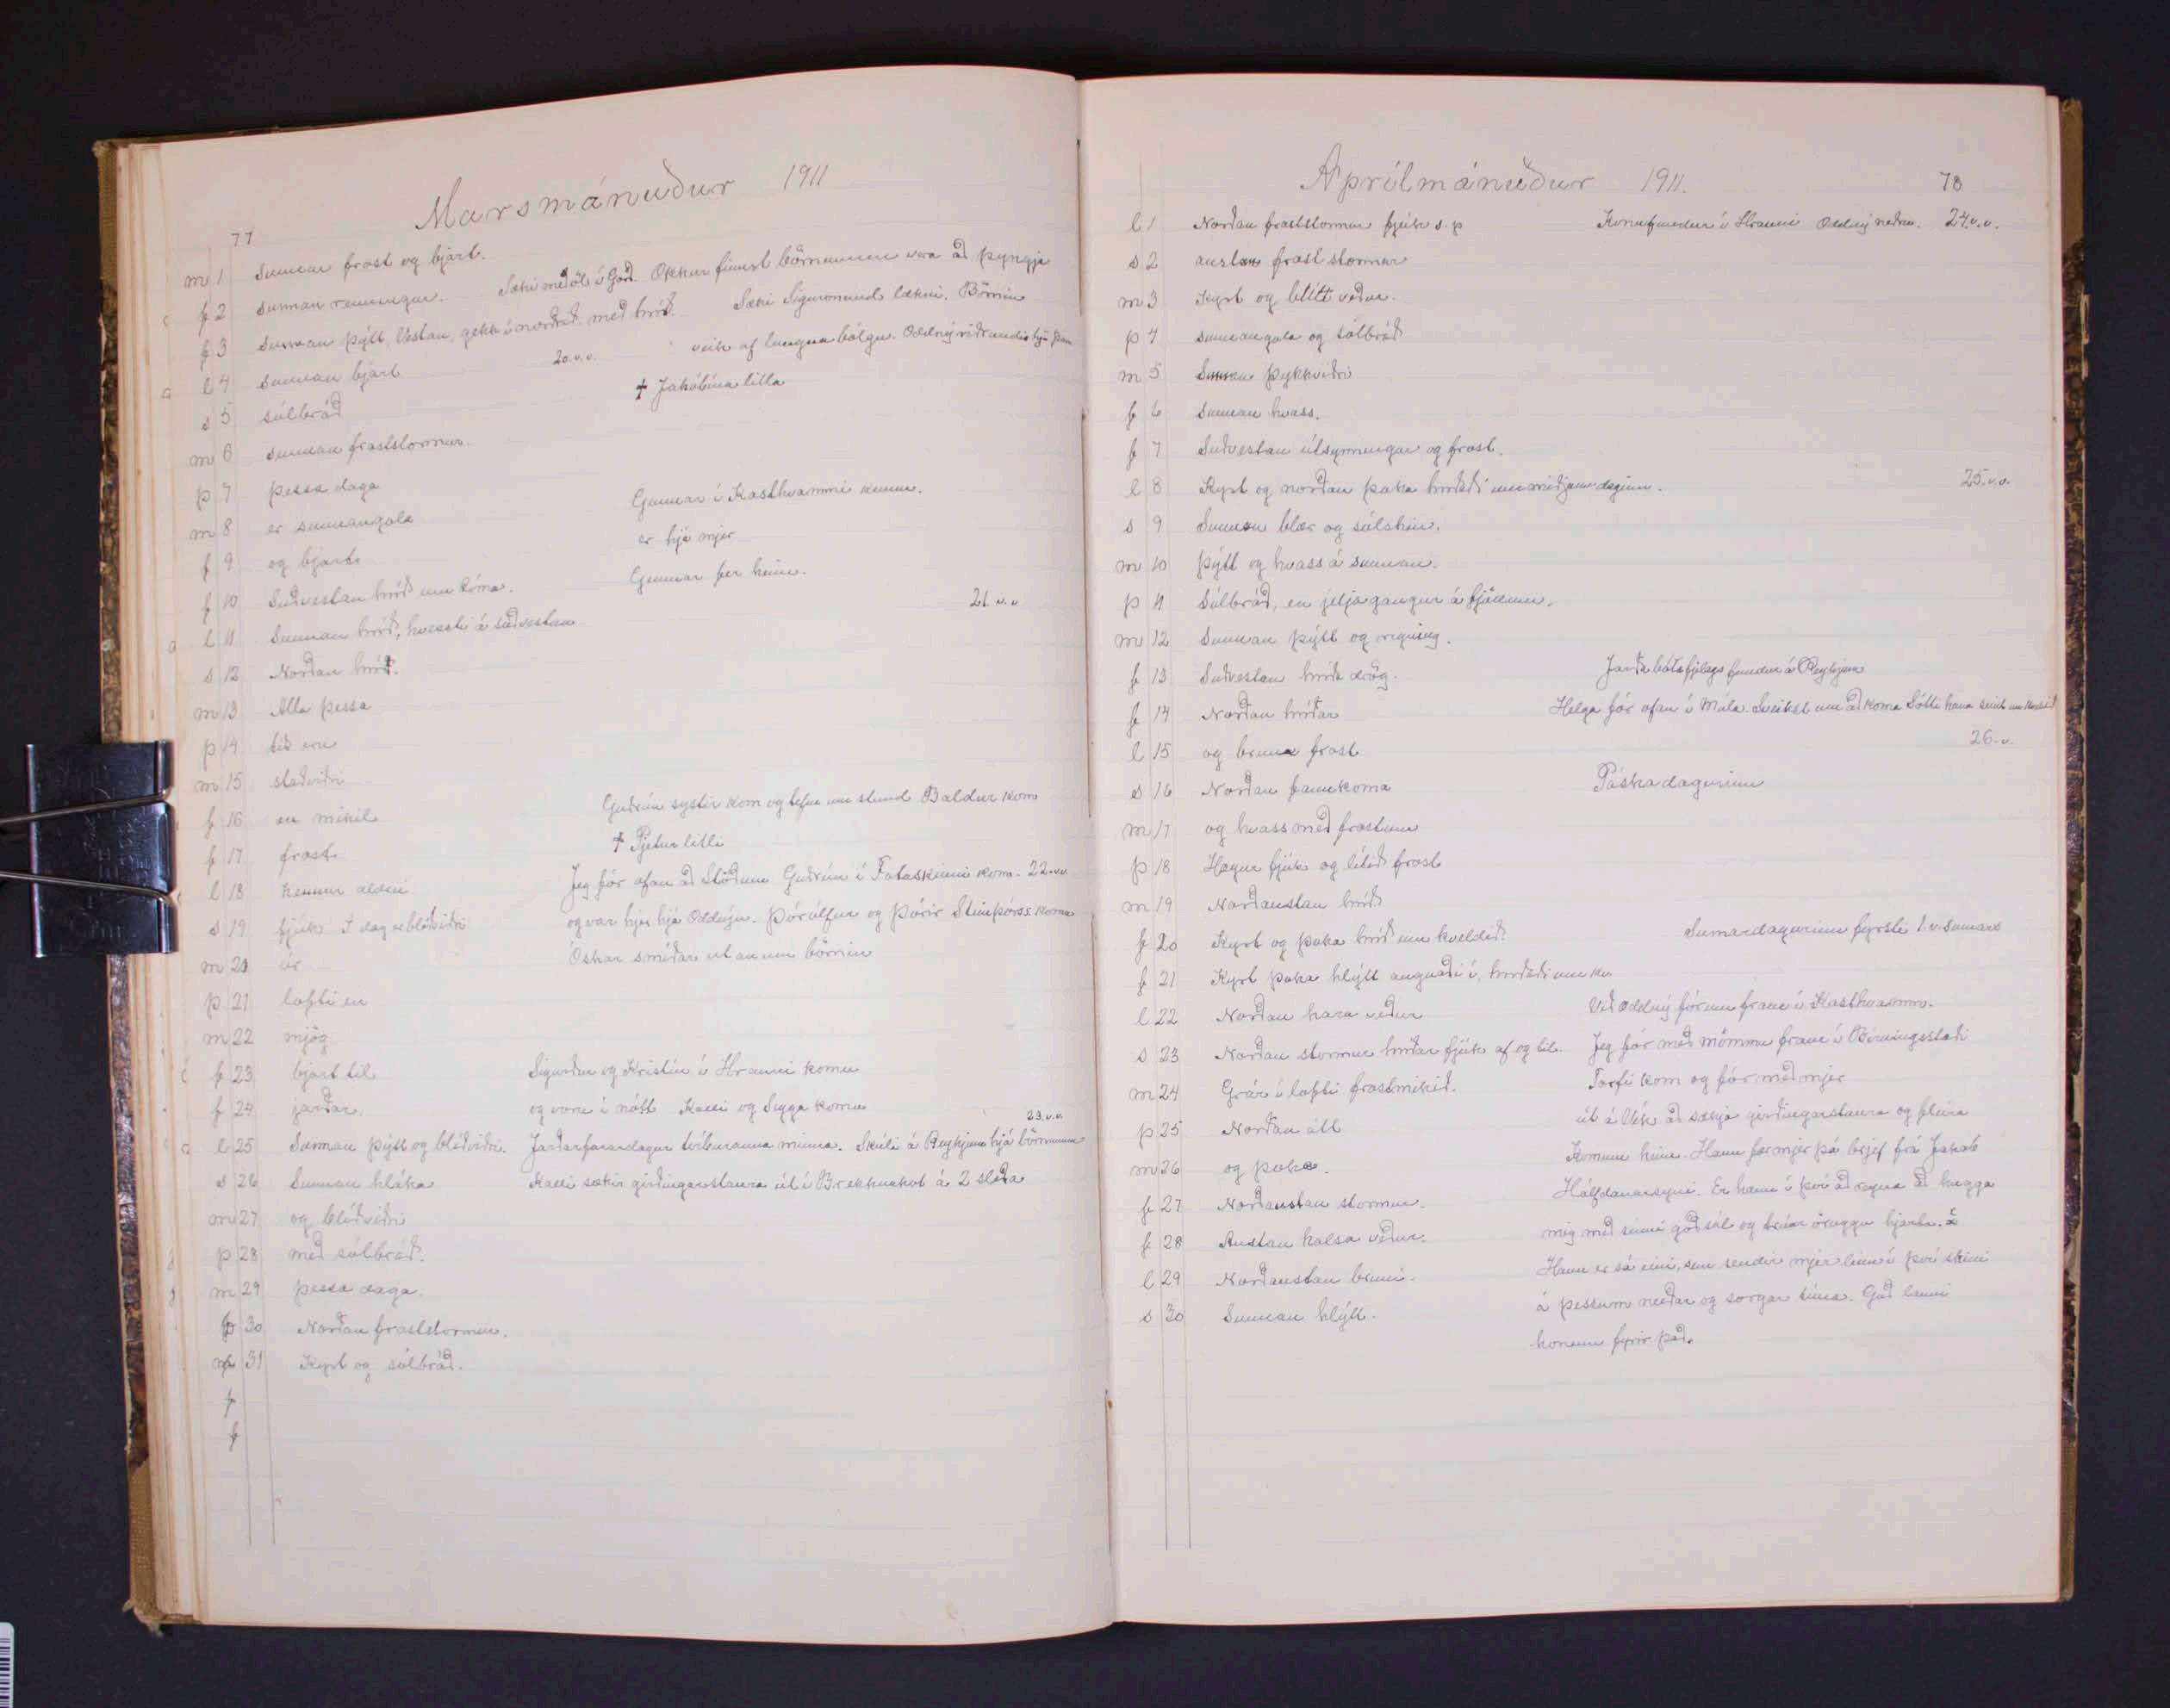 77
Marsmánuður 1911
m 1 Sunnan frost og bjart.
f 2 sunnan renningur. Sæki meðöl í Garð. Okkur finnst börnunum vera að þyngja
f 3 Sunnan þýtt, Vestan, gekk í norðrið með hríð. Sæki Sigurmund lækni. Börnin
l 4 sunnan bjart 20.v.v. veik af lungnabólgu. Oddný
s 5 sólbráð † Jakobína litla
m 6 sunnan froststormur.
þ 7 þessa daga
m 8 er sunnangola Gunnar í Kasthvammi kemur.
f 9 og bjart er hjá mjer
f 10 Suðvestan hríð um tíma. Gunnar fer heim.
l 11 Sunnan hríð, hvessti á suðvestan 21.v.v
s 12 Norðan hríð.
m 13 Alla þessa
þ 14 tíð eru
m 15 staðviðri
f 16 en mikil Guðrún systir kom og tefur um stund Baldur kom
f 17 frost † Pjetur litli
l 18 kemur aldrei Jeg fór ofan að Guðrún í Fataskinni kom. 22.v.v
s 19 fjúk Í dag er blíðviðri og var hjer hjá Oddnýu. Þórólfur og Þórir Steinþórss. koma
m 20 úr Óskar smíðar utan um börnin
þ 21 lofti en
m 22 mjög
f 23 bjart til Sigurður og Kristín í Hrauni komu
f 24 jarðar. og voru í nótt Kalli og Sigga komu
l 25 Sunnan þýtt og blíðviðri. Jarðarfarardagur tvíburanna minna. Skúli á Reykjum hjá börnunum 23.v.v.
s 26 Sunnan hláka Kalli sækir girðingarstaura út í Brekknakot á 2 sleða
m 27 og blíðviðri
þ 28 með sólbráð.
m 29 þessa daga.
30 Norðan froststormur.
31 Kyrt og sólbráð.
f
f
Aprílmánuður 1911. 78
l 1 Norðan froststormur fjúk s.p Konufundur í Hrauni Oddný neðra. 24.v.v.
s 2 austan frost stormur
m 3 Kyrt og blítt veður.
þ 4 sunnangola og sólbráð
m 5 Sunnan þykkviðri
f 6 Sunnan hvass.
f 7 Suðvestan útsynningur og frost.
l 8 Kyrt og norðan þoka hríðaði um miðjan daginn. 25.v.v.
s 9 Sunnan blær og sólskin.
m 10 Þýtt og hvass á sunnan.
þ 11 Sólbráð, en jeljagangur á fjöllum.
m 12 Sunnan þýtt og rigning.
f 13 Suðvestan hríða drög. Jarðabótafjelags fundur á Reykjum
f 14 Norðan hríðar Helga fór ofan í Múla. Sveikst um að koma Sótti hana seint um kveldið
l 15 og bruna frost 26.v.
s 16 Norðan fannkoma Páskadagurinn
m 17 og hvass með frostum
þ 18 Hægur fjúk og lítið frost
m 19 Norðaustan hríð
f 20 Kyrt og þoka hríð um kveldið. Sumardagurinn fyrsti 1.v.sumars
f 21 Kyrt þoka hlýtt hríðaði um kv.
l 22 Norðan kara veður Við Oddný fórum fram í Kasthvamm.
s 23 Norðan stormur hríðar fjúk af og til. Jeg fór með mömmu fram í Birningsstaði
m 24 Grár í lofti frostmikið. Torfi kom og fór með mjer
þ 25 Norðan átt út á Vík að sækja girðingarstaura og fleira
m 26 og þoka. Komum heim. Hann fær mjer þá brjef frá Jakob
f 27 Norðaustan stormur. Hálfdanarsyni. Er hann í því að reyna að hugga
f 28 Austan kalsa veður. mig með sinni góð sál og trúar öruggu hjarta.
l 29 Norðaustan bruni. Hann er sá eini, sem sendir mjer línu í því skini
s 30 Sunnan hlýtt. á þessum neyðar og sorgar tíma. Guð launi
honum fyrir það.